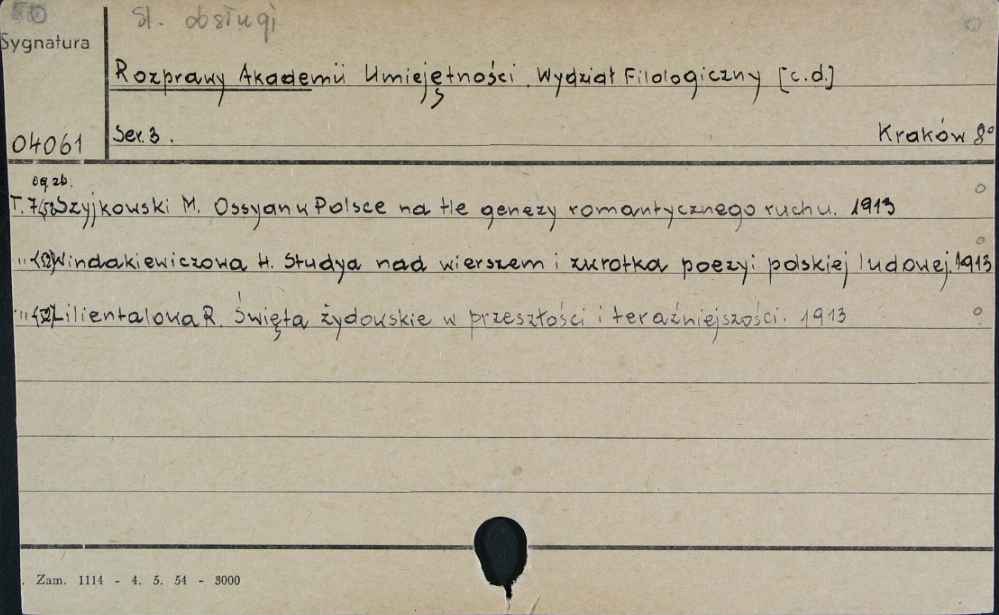 St. obsługi
Sygnatura
Rozprawy Akademii Umiejętności. Wydział Filologiczny [c.d.]
04061 Ser. 3. Kraków 8°
eg. zb.
T. 7 Szyjkowski M. Ossyan u Polsce na tle genezy romantycznego ruchu. 1913
" Windakiewiczowa H. Studya nad wierszem i zwrotką poezyi polskiej ludowej. 1913
" Lilientalowa R. Święta żydowskie w przeszłości i teraźniejszości. 1913
Zam. 1114 - 4. 5. 54 - 3000